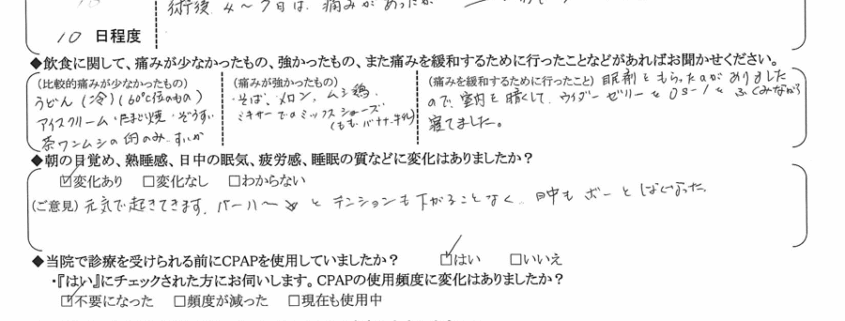 術後 4〜7日は、痛みがあったが
10 日程度
◆飲食に関して、痛みが少なかったもの、強かったもの、また痛みを緩和するために行ったことなどがあればお聞かせください。
(比較的痛みが少なかったもの)
うどん(冷)(60℃位のもの)
アイスクリーム・たまご焼・ぞうすい
茶ワンムシの肉のみ、すいか
(痛みが強かったもの)
・そば、メロン、ムシ鶏
ミキサーでのミックスジューズ
(もも・バナナ・牛乳)
(痛みを緩和するために行ったこと) 眠剤をもらったのがありました
ので、室内を暗くして、ウイダーゼリーやOS-1をふくみながら
寝てました。
◆朝の目覚め、熟睡感、日中の眠気、疲労感、睡眠の質などに変化はありましたか?
☑変化あり □変化なし □わからない
(ご意見) 元気で起きてきます。 とテンションも下がることなく、日中もボーとしなくなった
◆当院で診療を受けられる前にCPAPを使用していましたか? ☑はい □いいえ
・『はい』にチェックされた方にお伺いします。CPAPの使用頻度に変化はありましたか?
☑不要になった □頻度が減った □現在も使用中